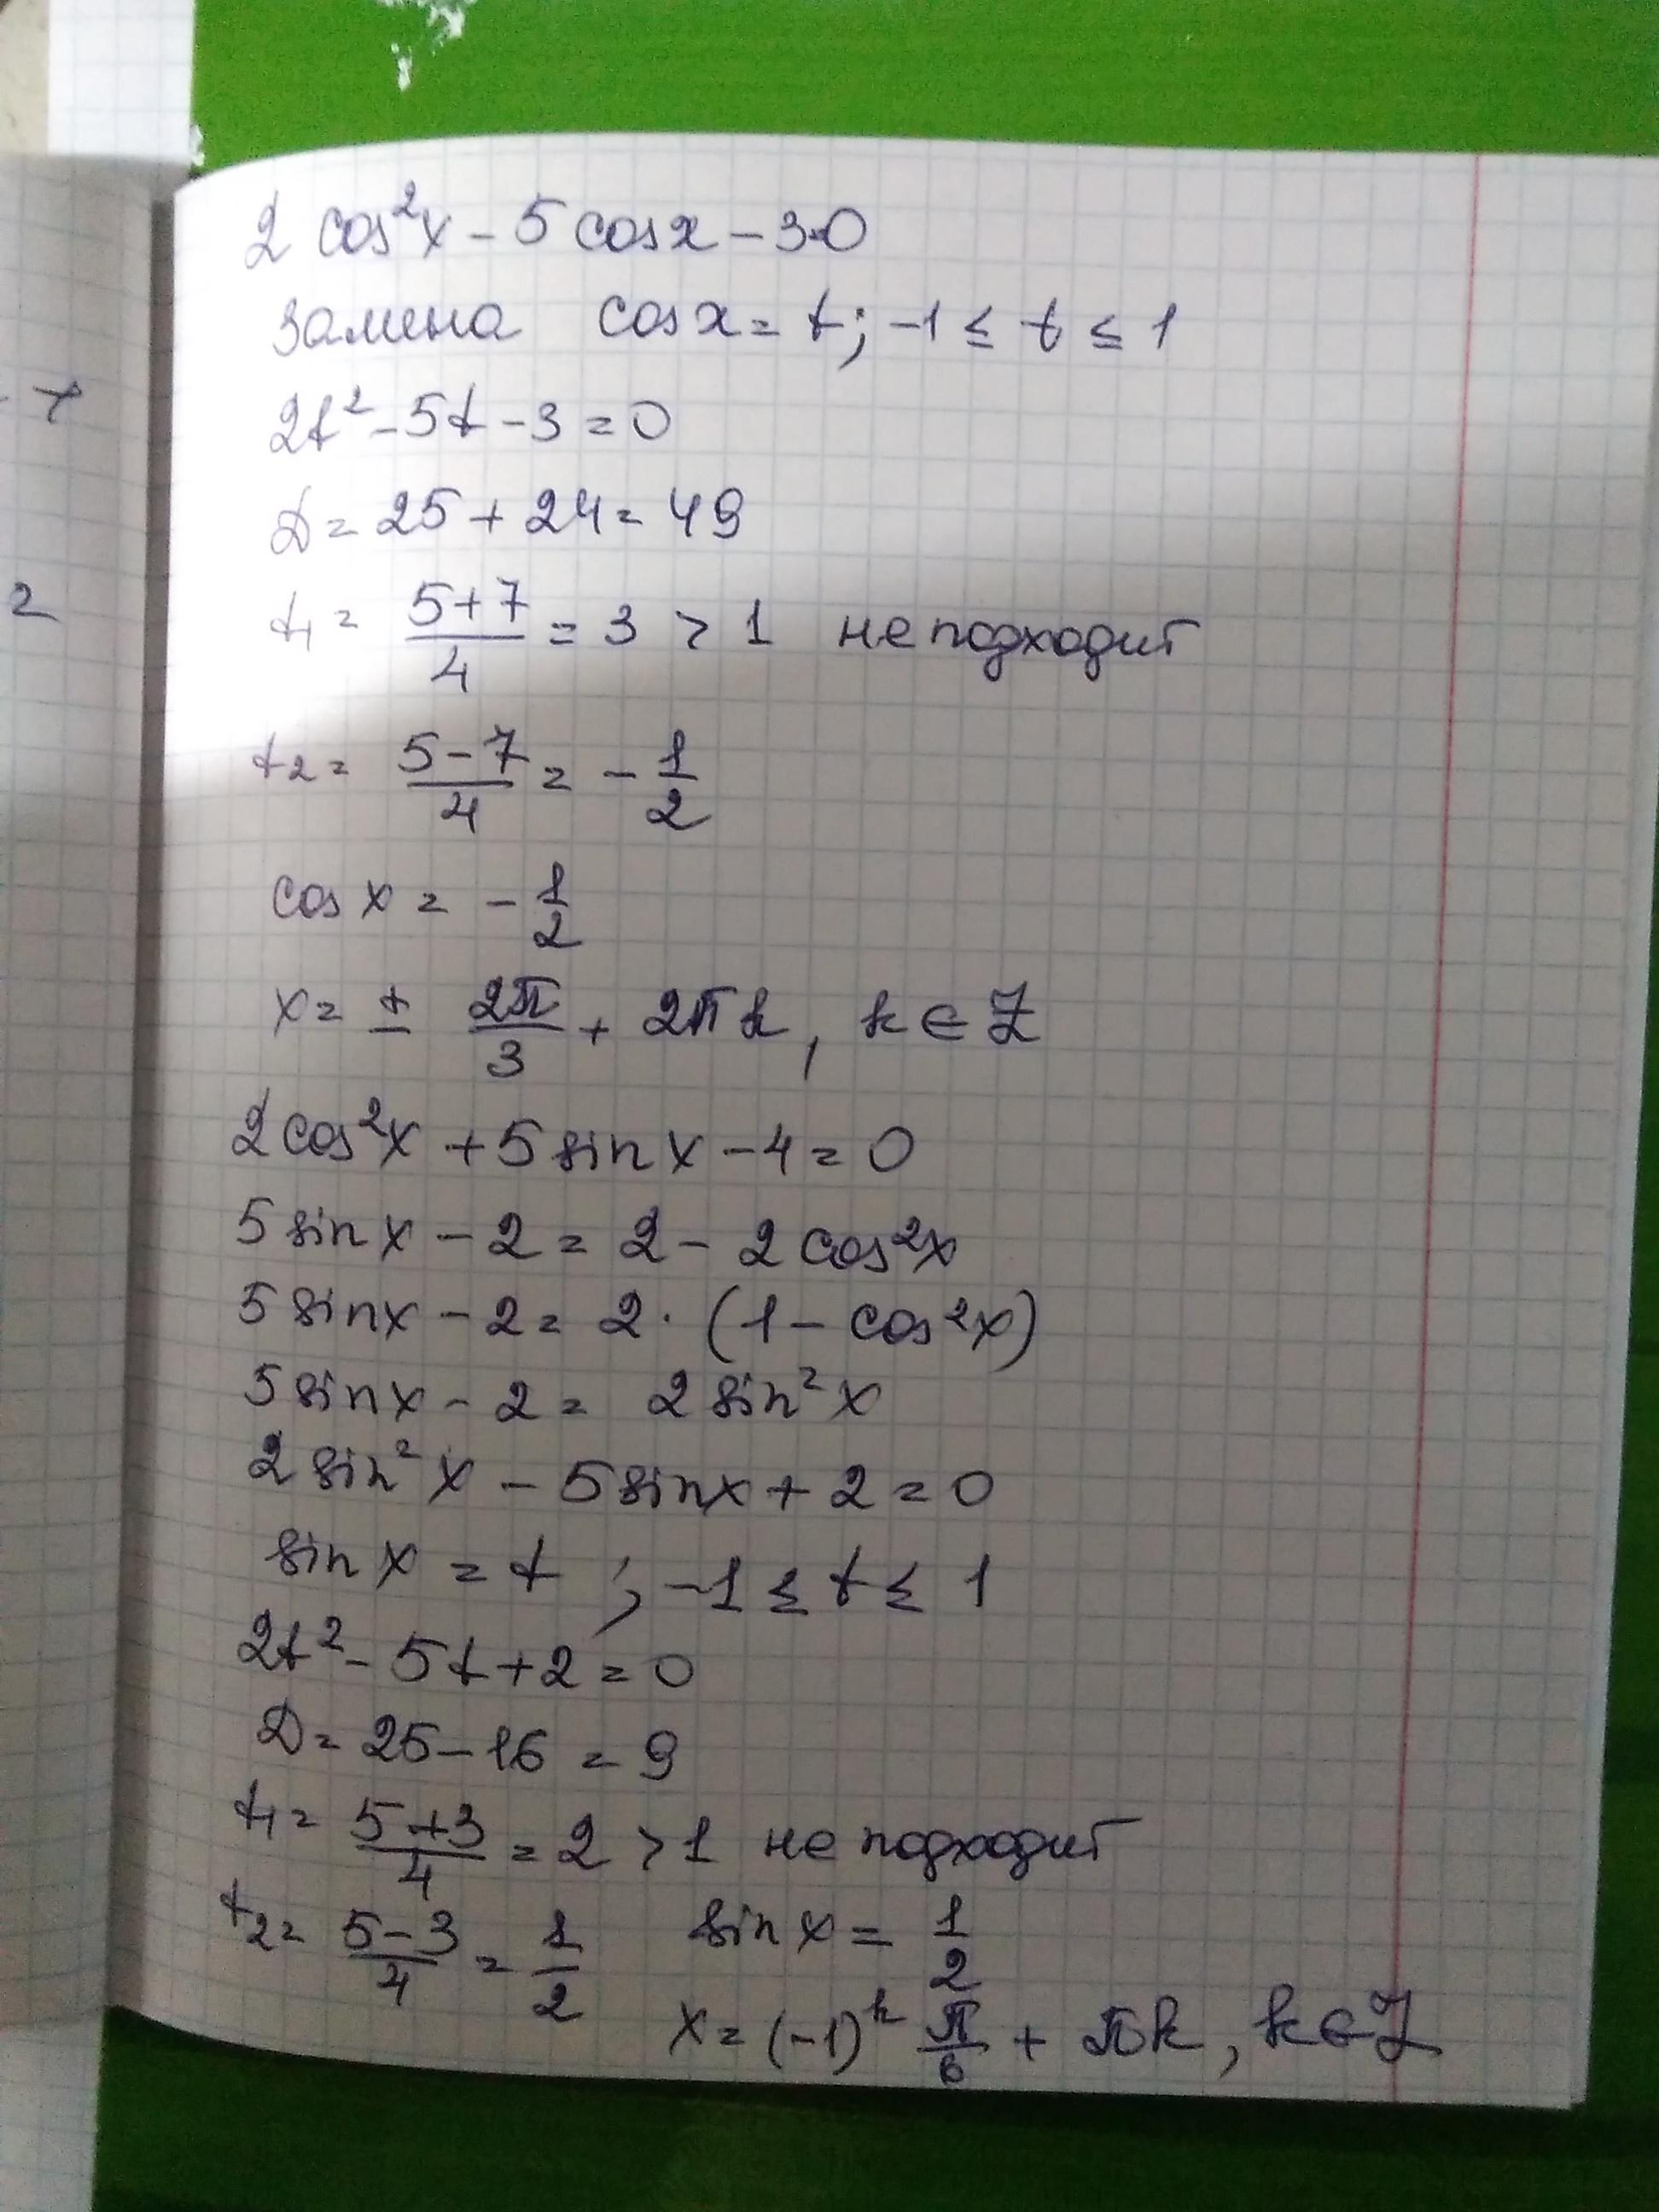 2 cos²x - 5 cos x - 3=0
Замена cos x = t; -1 ≤ t ≤ 1
2t² - 5t - 3 = 0
D = 25 + 24 = 49
t₁ = (5+7)/4 = 3 > 1 не подходит
t₂ = (5-7)/4 = -1/2
cos x = -1/2
x = ± 2π/3 + 2πk, k ∈ Z
2 cos²x + 5 sin x - 4 = 0
5 sin x - 2 = 2 - 2 cos²x
5 sin x - 2 = 2 · (1 - cos²x)
5 sin x - 2 = 2 sin²x
2 sin²x - 5 sin x + 2 = 0
sin x = t ; -1 ≤ t ≤ 1
2t² - 5t + 2 = 0
D = 25 - 16 = 9
t₁ = (5+3)/4 = 2 > 1 не подходит
t₂ = (5-3)/4 = 1/2 sin x = 1/2
x = (-1)ᵏ π/6 + πk, k ∈ Z
2